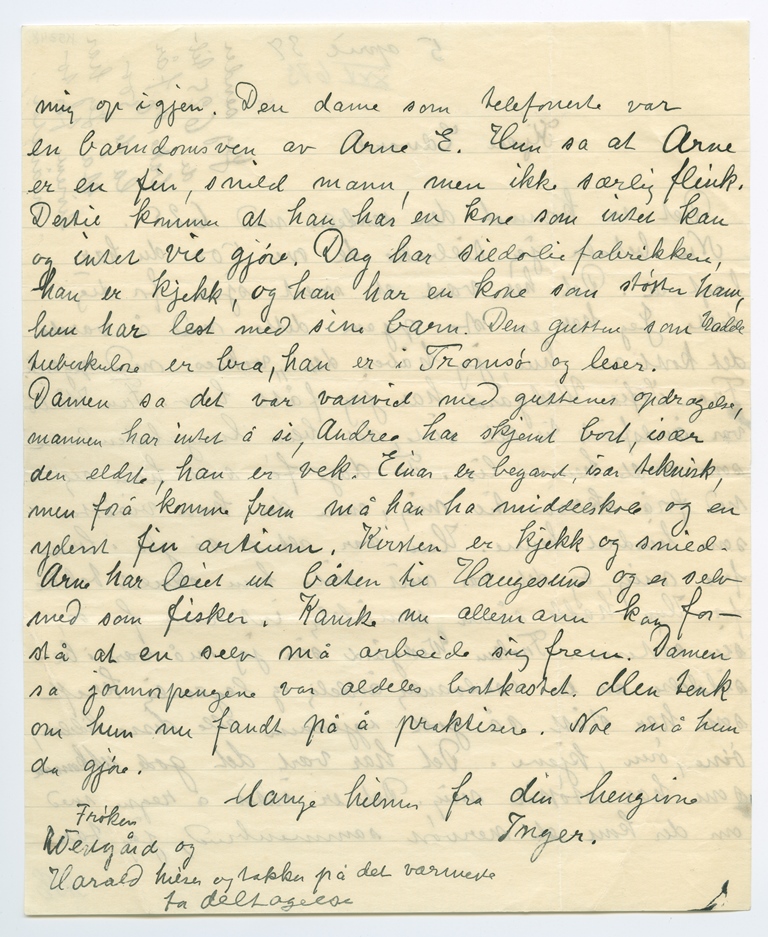 mig op igjen. Den dame som telefonerte var
en barndomsven av Arne E. Hun sa at Arne
er en fin, snild mann, men ikke særlig flink.
Dertil kommer at han har en kone som intet kan
og intet vil gjøre. Dag har sildoliefabrikken,
han er kjekk, og han har en kone som støtter ham,
hun har lest med sine barn. Den gutten som hadde
tuberkulose er bra, han er i Tromsø og leser.
Damen sa det var vanvid med guttenes opdragelse,
mannen har intet å si, Andrea har skjemt bort, især
den eldste, han er vek. Einar er begavet, især teknisk,
men forå komme frem må han ha middelskole og en
yderst fin artium. Kirsten er kjekk og snild.
Arne har leiet ut båten til Haugesund og er selv
med som fisker. Kanske nu allemann kan for-
stå at en selv må arbeide sig frem. Damen
sa jormorpengene var aldeles bortkastet. Men tenk
om hun nu fandt på å praktisere. Noe må hun
da gjøre.
Mange hilsner fra din hengivne
Inger.
Frøken
Westgård og
Harald hilser og takker på det varmeste
for deltagelse
5 april 39